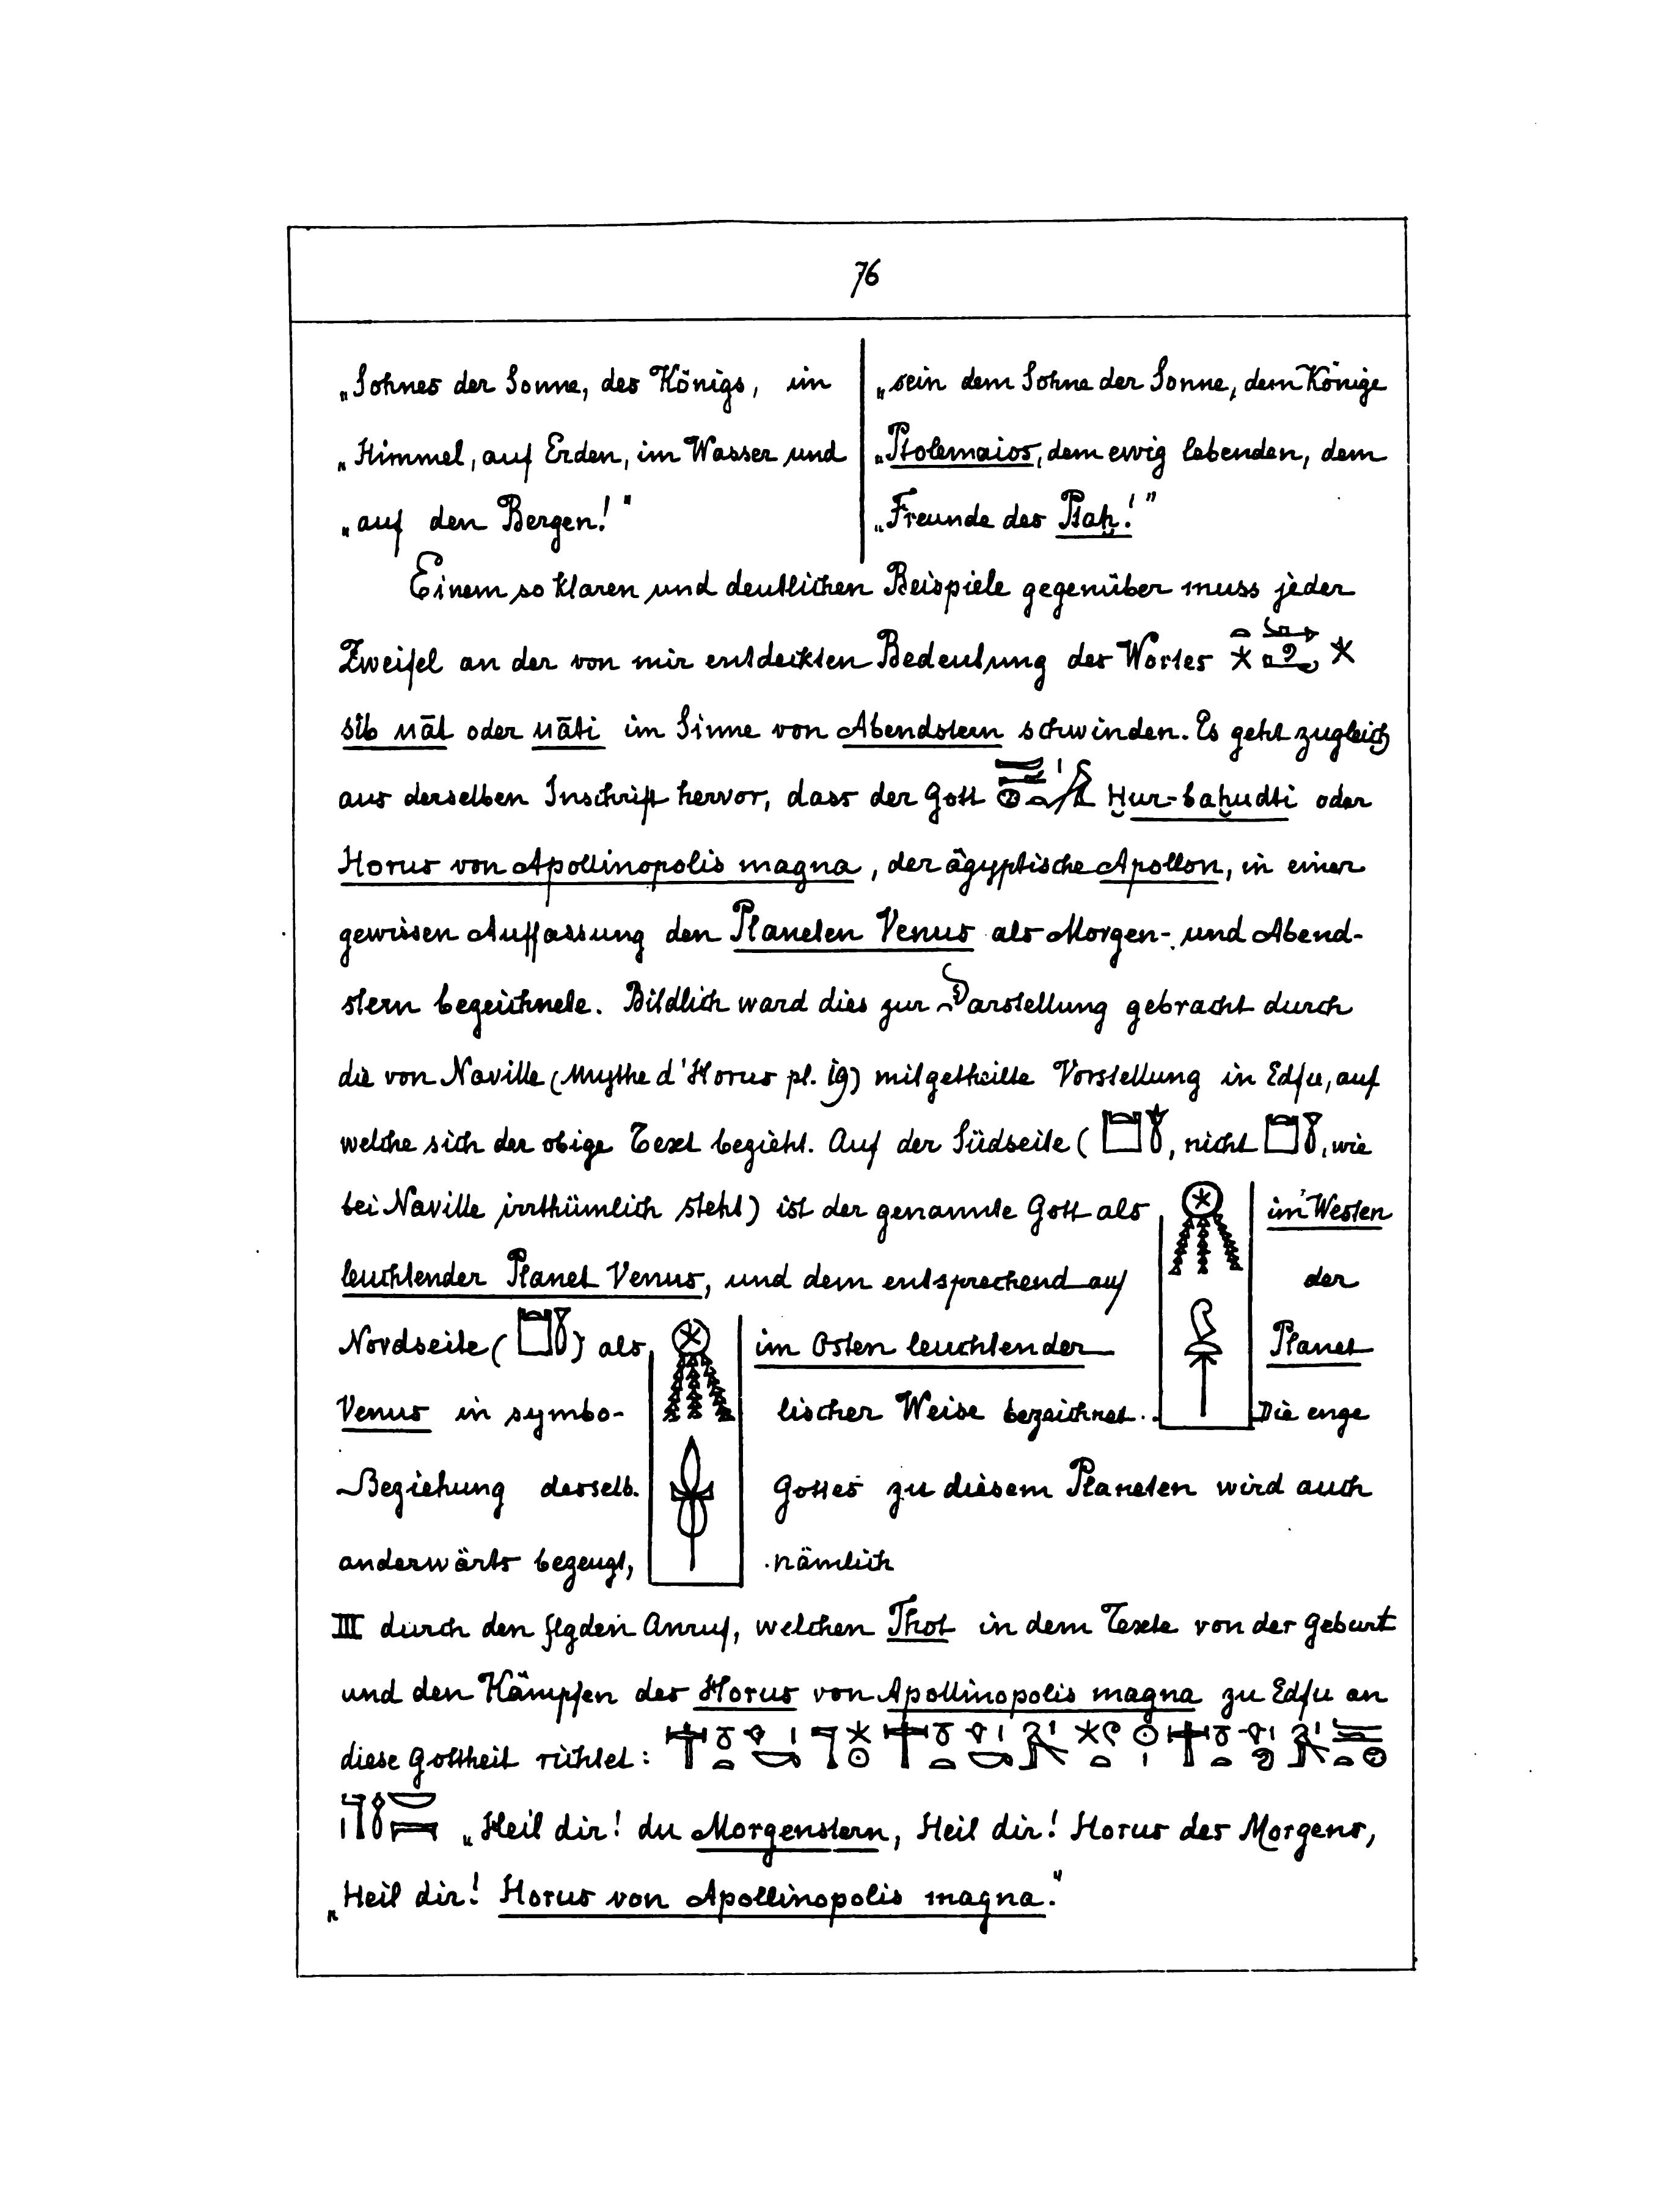 76
„Sohnes der Sonne, des Königs, im
„Himmel, auf Erden, im Wasser und
„auf den Bergen!“
„sein dem Sohne der Sonne, dem Könige
„Ptolemaios, dem ewig lebenden, dem
„Freunde des Ptaḫ!”
Einem so klaren und deutlichen Beispiele gegenüber muss jeder
Zweifel an der von mir entdeckten Bedeutung des Wortes
sib uāt oder uāti im Sinne von Abendstern schwinden. Es geht zugleich
aus derselben Inschrift hervor, dass der Gott Ḫur-baḫudti oder
Horus von Apollinopolis magna, der ägyptische Apollon, in einer
gewissen Auffassung den Planeten Venus als Morgen- und Abend-
stern bezeichnete. Bildlich ward dies zur Darstellung gebracht durch
die von Naville (Mythe d'Horus pl. 19) mitgetheilte Vorstellung in Edfu, auf
welche sich der obige Text bezieht. Auf der Südseite ( , nicht , wie
bei Naville irrthümlich steht) ist der genannte Gott als im Westen
leuchtender Planet Venus, und dem entsprechend auf der
Nordseite ( ) als im Osten leuchtender Planet
Venus in symbo- lischer Weise bezeichnet. Die enge
Beziehung desselb. Gottes zu diesem Planeten wird auch
anderwärts bezeugt, nämlich
III durch den flgden Anruf, welchen Thot in dem Texte von der Geburt
und den Kämpfen des Horus von Apollinopolis magna zu Edfu an
diese Gottheit richtet:
„Heil dir! du Morgenstern, Heil dir! Horus des Morgens,
„Heil dir! Horus von Apollinopolis magna.“